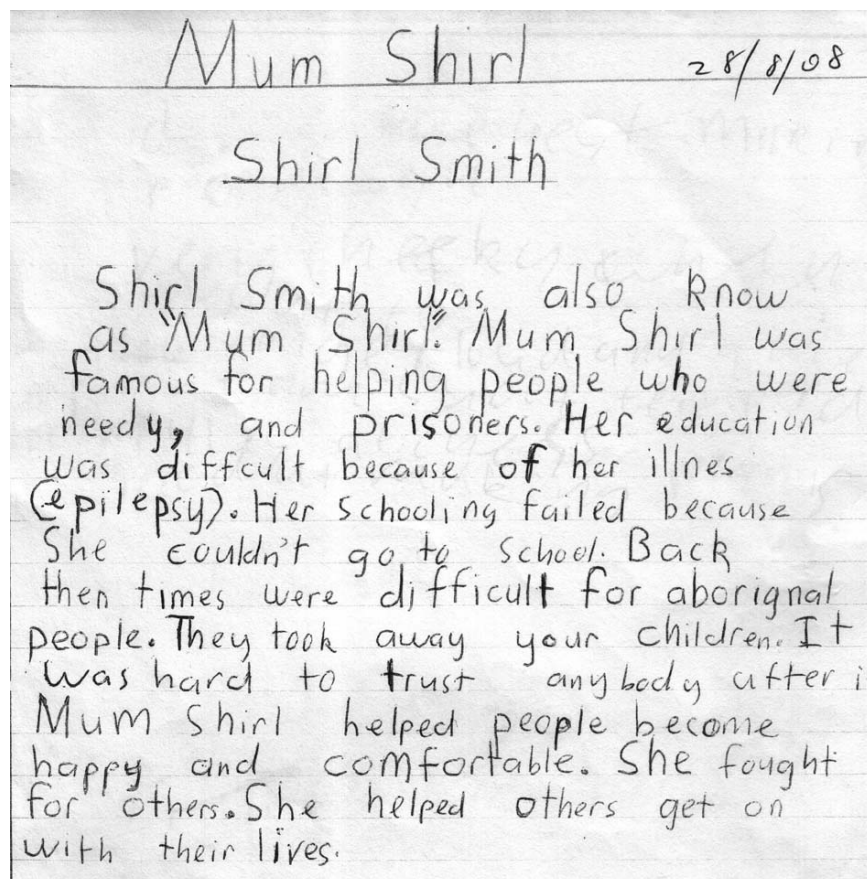 Mum Shirl 28/8/08
Shirl Smith
Shirl Smith was also know
as "Mum Shirl". Mum Shirl was
famous for helping people who were
needy, and prisoners. Her education
was difficult because of her illnes
(epilepsy). Her schooling failed because
She couldn't go to school. Back
then times were difficult for aborignal
people. They took away your children. It
was hard to trust anybody after
Mum Shirl helped people become
happy and comfortable. She fought
for others. She helped others get on
with their lives.